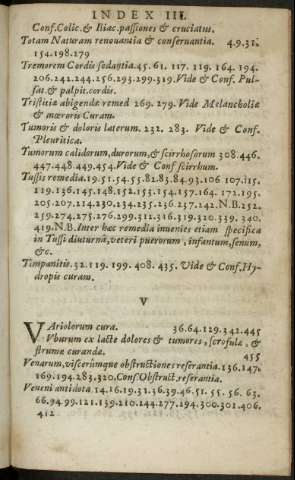 INDEX III.
Conf. Colic. & Iliac. passiones & cruciatus.
Totam Naturam renouantia & conseruantia. 4.9.31.
154.198.279
Tremorem Cordis sedantia. 45. 61. 117. 119. 164. 194.
206.241.244.256.293.299.319. Vide & Conf. Pul-
sat. & palpit. cordis.
Tristitiæ abigendæ remed 269. 279. Vide Melancholiæ
& mœroris Curam.
Tumoris & doloris laterum. 232. 283. Vide & Conf.
Pleuritica.
Tumorum calidorum, durorum, & scirrhosorum 308.446.
447.448.449.454. Vide & Conf scirrhum.
Tussis remedia. 19.51.54.55.82.85.84.93.106.107.115.
119.136.145.148.152.153.154.157.164. 172.195.
205.207.214.230.234.235.236.237.242. N.B. 252.
259.274.275.276.299.311.316.319.320.339. 340.
419. N.B. Inter hæc remedia inuenies etiam specifica
in Tussi diuturnâ, veteri puerorum, infantum, senum,
&c.
Timpanitis. 32. 119. 199. 408. 435. Vide & Conf. Hy-
dropis curam.
V
VAriolorum cura. 36.64.129.342.445
Vberum ex lacte dolores & tumores, scrofulæ, &
strumæ curandæ. 455
Venarum, viscerúmque obstructiones referantia. 136.147.
169.194.283.320. Conf. Obstruct. referantia.
Veneni antidota. 14.16.19.31.36.39.46.51. 55. 56. 63.
66.94.99.121.139.210.244.277.294.300.301.406.
412